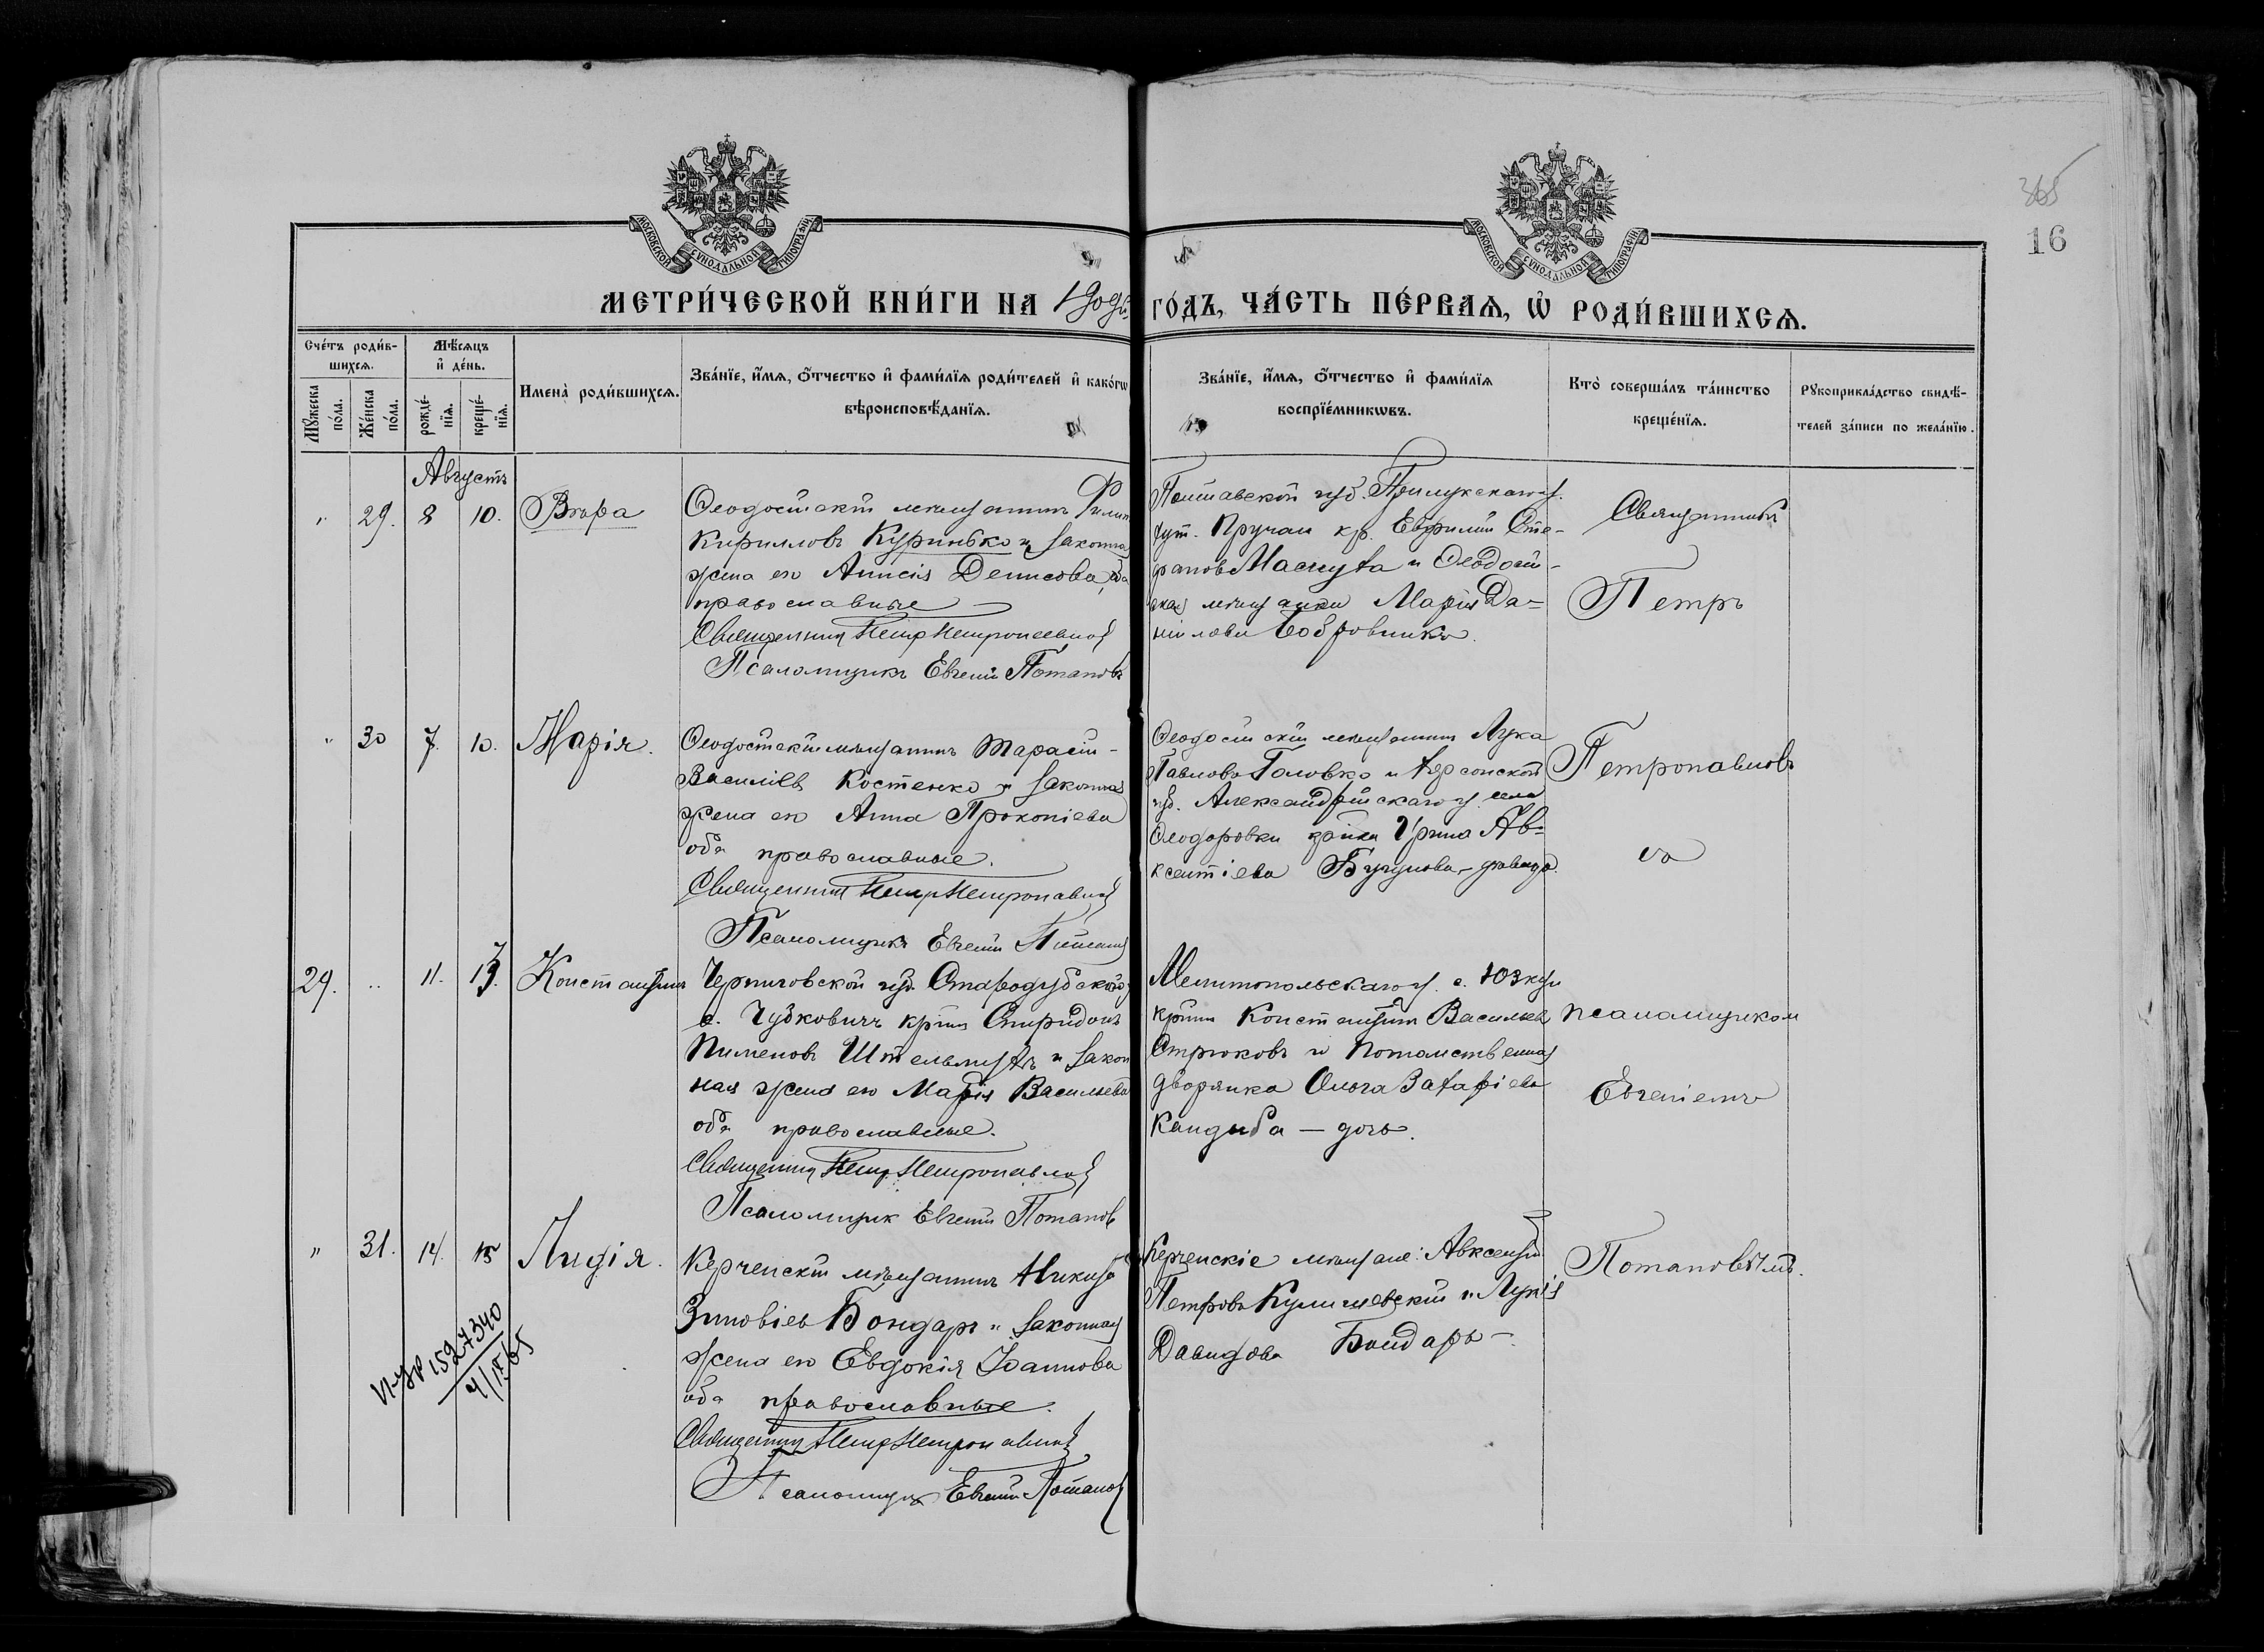 365
16
МОСКОВСКОЙ СѴНОДАЛЬНОЙ ТИПОГРАФІИ
МОСКОВСКОЙ СѴНОДАЛЬНОЙ ТИПОГРАФІИ
МЕТРИ́ЧЕСКОЙ КНИ́ГИ НА ГО́ДЪ, ЧА́СТЬ ПЕ́РВАѦ, Ѡ҆ РОДИ́ВШИХСѦ.
Сче́тъ роди́в-
шихсѧ.
Мѣ́сѧцъ
и҆ де́нь.
Мꙋ́жеска по́ла.
Же́нска по́ла.
рожде́-нїѧ.
креще́-нїѧ.
Имена̀ роди́вшихсѧ.
Зва́нїе, и҆́мѧ, ѻ҆́тчество и҆ фами́лїѧ роди́телей и҆ како́гѡ
вѣроисповѣ́данїѧ.
Зва́нїе, и҆́мѧ, ѻ҆́тчество и҆ фами́лїѧ
воспрїе́мникѡвъ.
Кто̀ соверша́лъ та́инство
креще́нїѧ.
Рꙋкоприкла́дство свидѣ́-
телей за́писи по жела́нїю.
Августъ
" 29. 8 10. Вѣра
Ѳеодосійскій мѣщанинъ Филип
Кирилловъ Куринько и законная
жена его Анисія Денисова, оба
православные
Священникъ Петръ Петропавловъ
Псаломщикъ Евгеній Потаповъ
Полтавской губ. Прилукскаго у.
хут. Кручаи кр. Евфимій Сте-
фановъ Маслуха и Ѳеодосій-
ская мѣщанка Марія Да-
нілова Бобровника.
Священникъ
Петръ
" 30 7. 10. Марія.
Ѳеодосійскій мѣщанинъ Тарасій
Василіевъ Костенко и законная
жена его Анна Прокопіева
оба православные.
Священникъ Петръ Петропавловъ
Псаломщикъ Евгеній Потаповъ
Ѳеодосійскій мѣщанинъ Лука
Павловъ Головко и Херсонской
губ. Александрійскаго у. села
Ѳеодоровки Ирина Ав-
ксентіева
Петропавловъ
съ
29. " 11. Константинъ
Черниговской губ. Стародубскаго у.
с. Чубковичъ кр-нъ Спиридонъ
Пименовъ Штельмухъ и закон
ная жена его Марія Васильева
оба православные.
Священникъ Петръ Петропавловъ
Псаломщик Евгеній Потаповъ
Мелитопольскаго у. с. Юзкуи
кр-нинъ Константинъ Васильевъ
Стрюковъ и потомственная
дворянка Ольга Захаріева
Кандыба — дочь.
псаломщиком
Евгеніемъ
" 31. 14. 15 Лидія.
Керченскій мѣщанинъ Никита
Зиновіевъ Бондарь и законная
жена его Евдокія Іоаннова
оба православные.
Священникъ Петръ Петропавловъ
Псаломщикъ Евгеній Потаповъ
Керченскіе мѣщане: Авксентій
Петровъ Куличевскій и Лукія
Давидова Бондарь —
Потаповымъ.
1527340